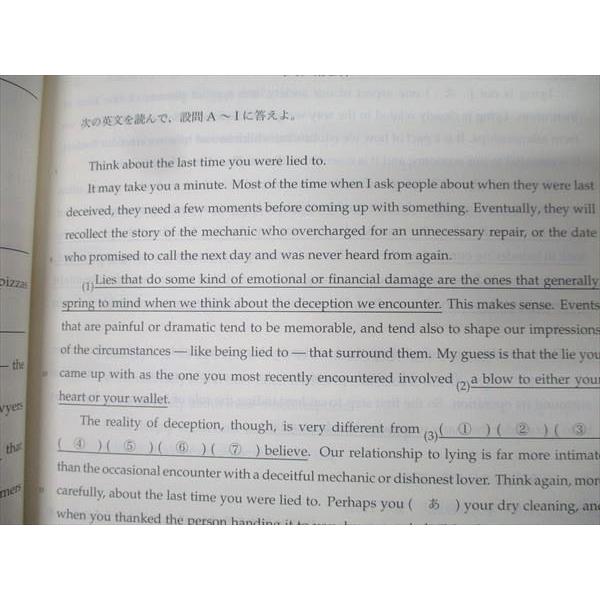 次の英文を読んで、設問A～Iに答えよ。
Think about the last time you were lied to.
It may take you a minute. Most of the time when I ask people about when they were last
deceived, they need a few moments before coming up with something. Eventually, they will
recollect the story of the mechanic who overcharged for an unnecessary repair, or the date
who promised to call the next day and was never heard from again.
(1)Lies that do some kind of emotional or financial damage are the ones that generally
spring to mind when we think about the deception we encounter. This makes sense. Events
that are painful or dramatic tend to be memorable, and tend also to shape our impressions
of the circumstances — like being lied to — that surround them. My guess is that the lie you
came up with as the one you most recently encountered involved (2)a blow to either your
heart or your wallet.
The reality of deception, though, is very different from (3)( ① ) ( ② ) ( ③
( ④ ) ( ⑤ ) ( ⑥ ) ( ⑦ ) believe. Our relationship to lying is far more intimate
than the occasional encounter with a deceitful mechanic or dishonest lover. Think again, more
carefully, about the last time you were lied to. Perhaps you ( あ ) your dry cleaning, and
when you thanked the person handing it to you
pizzas
— the
wyers
that
mers